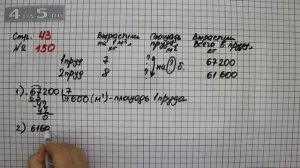 4apa5.ru
Стр. 43
№ 150
Вырастили на 1 м², кг
Площадь пруда, м²
Вырастили всего в пруду, кг
1 пруд 7 ? на ? б. 67200
2 пруд 8 ? 61 600
1) 67200 7
63 9600 (м²) - площадь 1 пруда
42
42
0
2) 6160